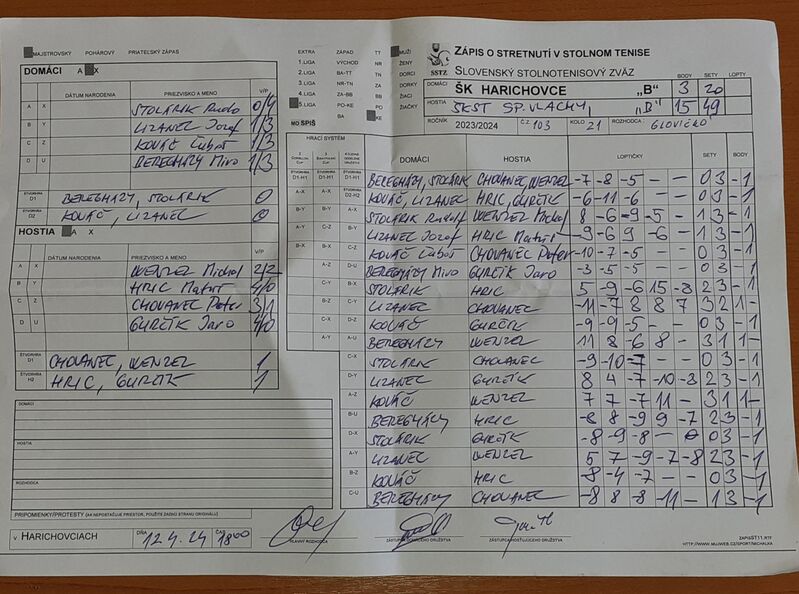 MAJSTROVSKÝ POHÁROVÝ PRIATEĽSKÝ ZÁPAS
EXTRA ZÁPAD TT MUŽI
1.LIGA VÝCHOD NR ŽENY
2.LIGA BA-TT TN DORCI
3.LIGA NR-TN ZA DORKY
4.LIGA ZA-BB BB ŽIACI
5.LIGA PO-KE PO ŽIAČKY
BA KE
MO SPIŠ
SSTZ
ZÁPIS O STRETNUTÍ V STOLNOM TENISE
SLOVENSKÝ STOLNOTENISOVÝ ZVÄZ
BODY SETY LOPTY
DOMÁCI ŠK HARICHOVCE „B" 3 20
HOSTIA ŠKST SP. VLACHY, "B" 15 49
ROČNÍK 2023/2024 ČZ 103 KOLO 21 ROZHODCA :
DOMÁCI A X
DÁTUM NARODENIA PRIEZVISKO A MENO V/P
A X STOLÁRIK Rudo 0/4
B Y LIZANEC Jozef 1/3
C Z KOVÁČ Ľuboš 1/3
D U BEREGHÁZY Miro 1/3
ŠTVORHRA D1 BEREGHÁZY, STOLÁRIK 0
ŠTVORHRA D2 KOVÁČ, LIZANEC 0
HOSTIA A X
DÁTUM NARODENIA PRIEZVISKO A MENO V/P
A X WENZEL Michal 2/2
B Y HRIC Matúš 4/0
C Z CHOVANEC Peter 3/1
D U GURČÍK Jaro 4/0
ŠTVORHRA CHOVANEC, WENZEL 1
ŠTVORHRA H2 HRIC, GURČÍK 1
HRACÍ SYSTÉM
DOMÁCI HOSTIA LOPTIČKY SETY BODY
D1-H1 D1-H1 D1-H1 BEREGHÁZY, STOLÁRIK CHOVANEC, WENZEL -7 -8 -5 - - 0 3 -1
A-X A-X D2-H2 KOVÁČ, LIZANEC HRIC, GURČÍK -6 -11 -6 - - 0 3 -1
B-Y B-Y A-X STOLÁRIK Rudolf WENZEL Michal 8 -6 -9 -5 - 1 3 -1
A-Y C-Z B-Y LIZANEC Jozef HRIC Matúš -9 -6 9 -6 - 1 3 -1
B-X B-X C-Z KOVÁČ Ľuboš CHOVANEC Peter -10 -7 -5 - - 0 3 -1
A-Z D-U BEREGHÁZY Miro GURČÍK Jaro -3 -5 -5 - - 0 3 -1
C-Y B-X STOLÁRIK HRIC 5 -9 -6 15 -8 2 3 -1
B-Z C-Y LIZANEC CHOVANEC -11 -7 8 8 7 3 2 1 -
C-X D-Z KOVÁČ GURČÍK -9 -9 -5 - - 0 3 -1
A-Y A-U BEREGHÁZY WENZEL 11 8 -6 8 - 3 1 1 -
C-X STOLÁRIK CHOVANEC -9 -10 -7 - - 0 3 -1
D-Y LIZANEC GURČÍK 8 4 -7 -10 -3 2 3 -1
A-Z KOVÁČ WENZEL 7 7 -7 11 - 3 1 1 -
B-U BEREGHÁZY HRIC -8 8 -9 9 -7 2 3 -1
D-X STOLÁRIK GURČÍK -8 -9 -8 - 0 3 -1
A-Y LIZANEC WENZEL 5 7 -9 -7 -8 2 3 -1
B-Z KOVÁČ HRIC -8 -4 -7 - - 0 3 -1
C-U BEREGHÁZY CHOVANEC -8 8 -8 -11 - 1 3 -1
DOMÁCI
HOSTIA
ROZHODCA
PRIPOMIENKY/PROTESTY (AK NEPOSTAČUJE PRIESTOR, POUŽITE ZADNÚ STRANU ORIGINÁLU)
V HARICHOVCIACH DŇA 12.4.24 ČAS 1800
HLAVNÝ ROZHODCA ZÁSTUPCA DOMÁCEHO DRUŽSTVA ZÁSTUPCA HOSŤUJÚCEHO DRUŽSTVA
ZAPISST11.RTF
HTTP://WWW.MUJWEB.CZ/SPORT/MICHALKA